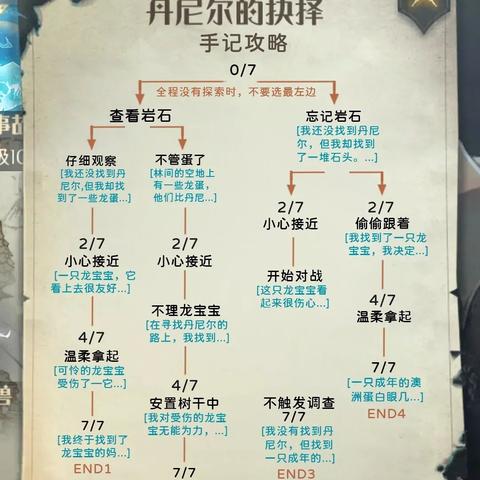 丹尼尔的抉择
手记攻略
0/7
全程没有探索时，不要选最左边
查看岩石
忘记岩石
[我还没找到丹尼尔，但我却找到了一堆石头。...]
仔细观察
[我还没找到丹
尼尔,但我却找
到了一些龙蛋...]
不管蛋了
[林间的空地上
有一些龙蛋，
他们比丹尼...]
2/7
小心接近
[一只龙宝宝，它
看上去很友好...]
2/7
小心接近
不理龙宝宝
[在寻找丹尼尔的
路上，我找到...]
2/7
小心接近
开始对战
[这只龙宝宝看
起来很伤心...]
2/7
偷偷跟着
[我找到了一只龙
宝宝，我决定...]
4/7
温柔拿起
[可怜的龙宝宝
受伤了一它...]
4/7
安置树干中
[我对受伤的龙宝
宝无能为力，...]
不触发调查
7/7
[我没有找到丹
尼尔，但找到
一只成年的...]
END3
4/7
温柔拿起
7/7
[一只成年的澳
洲蛋白眼几...]
END4
7/7
[我终于找到了
龙宝宝的妈...]
END1
7/7